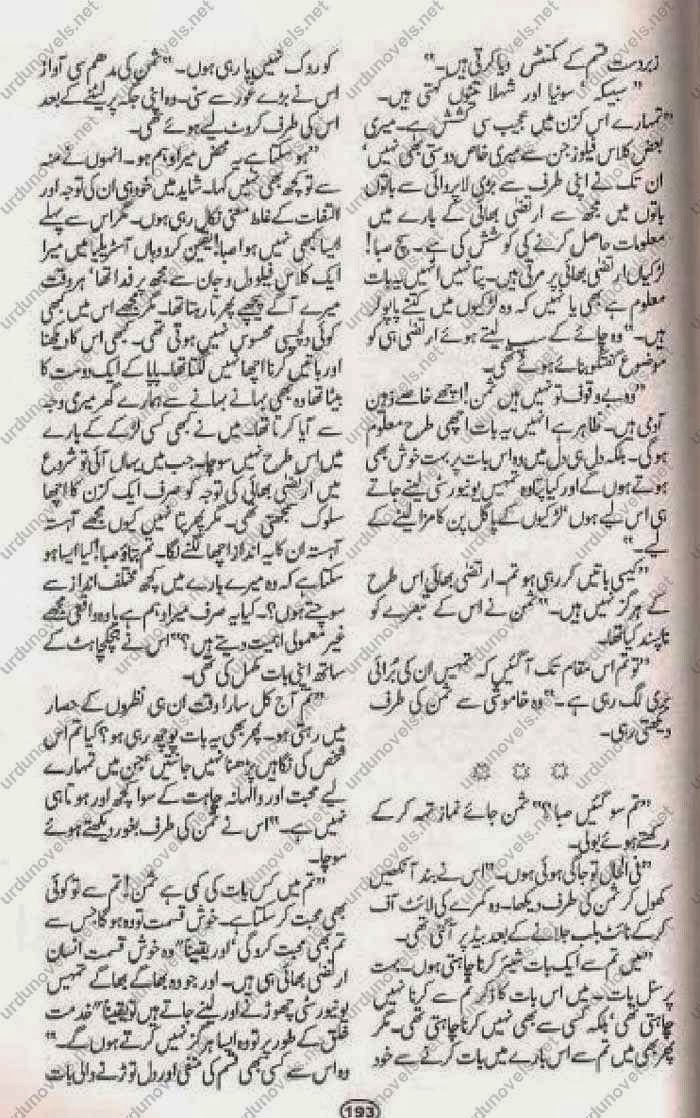 زبردست قسم کے کمنٹس دیا کرتی ہیں۔"
"سبیکہ، سونیا اور شہلا تینوں کہتی ہیں۔
"تمہارے اس کزن میں عجیب سی کشش ہے۔ میری
بعض کلاس فیلوز جن سے میری خاص دوستی بھی نہیں،
ان تک نے اپنی طرف سے بڑی لاپروائی سے باتوں
باتوں میں مجھ سے ارتضیٰ بھائی کے بارے میں
معلومات حاصل کرنے کی کوشش کی ہے۔ سچ صبا!
لڑکیاں ارتضیٰ بھائی پر مرتی ہیں۔ پتا نہیں انہیں یہ بات
معلوم ہے بھی یا نہیں کہ وہ لڑکیوں میں کتنے پاپولر
ہیں۔" وہ چائے کے سپ لیتے ہوئے ارتضیٰ ہی کو
موضوع گفتگو بنائے ہوئے تھی۔
"وہ بے وقوف تو نہیں ہیں ثمن! اچھے خاصے ذہین
آدمی ہیں۔ ظاہر ہے انہیں یہ بات اچھی طرح معلوم
ہوگی۔ بلکہ دل ہی دل میں وہ اس بات پر بہت خوش بھی
ہوتے ہوں گے اور کیا پتا وہ تمہیں یونیورسٹی لینے جاتے
ہی اس لیے ہوں، لڑکیوں کے پاگل پن کا مزا لینے کے
لیے۔"
"کیسی باتیں کر رہی ہو تم۔ ارتضیٰ بھائی اس طرح
کے ہرگز نہیں ہیں۔" ثمن نے اس کے تبصرے کو
ناپسند کیا تھا۔
"تو تم اس مقام تک آگئیں کہ تمہیں ان کی برائی
بری لگ رہی ہے۔" وہ خاموشی سے ثمن کی طرف
دیکھتی رہی۔
"تم سو گئیں صبا؟" ثمن جائے نماز تہہ کر کے
رکھتے ہوئے بولی۔
"فی الحال تو جاگی ہوئی ہوں۔" اس نے بند آنکھیں
کھول کر ثمن کی طرف دیکھا۔ وہ کمرے کی لائٹ آف
کر کے نائٹ بلب جلانے کے بعد بیڈ پر آگئی تھی۔
"میں تم سے ایک بات شیئر کرنا چاہتی ہوں۔ بہت
پرسنل بات۔ میں اس بات کا ذکر تم سے کرنا نہیں
چاہتی تھی، بلکہ کسی سے بھی نہیں کرنا چاہتی تھی۔ مگر
پھر بھی میں تم سے اس بارے میں بات کرنے سے خود
کو روک نہیں پا رہی ہوں۔" ثمن کی مدھم سی آواز
اس نے بڑے غور سے سنی۔ وہ اپنی جگہ پر لیٹنے کے بعد
اس کی طرف کروٹ لیے ہوئے تھی۔
"ہو سکتا ہے یہ محض میرا وہم ہو۔ انہوں نے منہ
سے تو کچھ بھی نہیں کہا۔ شاید میں خود ہی ان کی توجہ اور
التفات کے غلط معنی نکال رہی ہوں۔ مگر اس سے پہلے
ایسا کبھی نہیں ہوا صبا! یقین کرو وہاں آسٹریلیا میں میرا
ایک کلاس فیلو دل و جان سے مجھ پر فدا تھا، ہر وقت
میرے آگے پیچھے پھرتا رہتا تھا۔ مگر مجھے اس میں کبھی
کوئی دلچسپی محسوس نہیں ہوتی تھی۔ کبھی اس کا دیکھنا
اور باتیں کرنا اچھا نہیں لگتا تھا۔ پاپا کے ایک دوست کا
بیٹا تھا وہ بھی بہانے بہانے سے ہمارے گھر میری وجہ
سے آیا کرتا تھا۔ میں نے کبھی کسی لڑکے کے بارے
میں اس طرح نہیں سوچا۔ جب میں یہاں آئی تو شروع
میں ارتضیٰ بھائی کی توجہ کو صرف ایک کزن کا اچھا
سلوک سمجھتی تھی۔ مگر پھر پتا نہیں کیوں مجھے آہستہ
آہستہ ان کا یہ انداز اچھا لگنے لگا۔ تم بتاؤ صبا! کیا ایسا ہو
سکتا ہے کہ وہ میرے بارے میں کچھ مختلف انداز سے
سوچتے ہوں؟ کیا یہ صرف میرا وہم ہے یا وہ واقعی مجھے
غیر معمولی اہمیت دیتے ہیں؟" اس نے ہچکچاہٹ کے
ساتھ اپنی بات مکمل کی تھی۔
"تم آج کل سارا وقت ان ہی نظروں کے حصار
میں رہتی ہو۔ پھر بھی یہ بات پوچھ رہی ہو؟ کیا تم اس
شخص کی نگاہیں پڑھنا نہیں جانتیں، جن میں تمہارے
لیے محبت اور والہانہ چاہت کے سوا کچھ اور ہوتا ہی
نہیں ہے۔" اس نے ثمن کی طرف بغور دیکھتے ہوئے
سوچا۔
"تم میں کس بات کی کمی ہے ثمن! تم سے تو کوئی
بھی محبت کر سکتا ہے۔ خوش قسمت تو وہ ہوگا جس سے
تم بھی محبت کرو گی، اور یقیناً" وہ خوش قسمت انسان
ارتضیٰ بھائی ہی ہیں۔ اور جو وہ بھاگے بھاگے تمہیں
یونیورسٹی چھوڑنے اور لینے جاتے ہیں تو یقیناً" خدمت
خلق کے طور پر تو وہ ایسا ہرگز نہیں کرتے ہوں گے۔"
وہ اس سے کسی بھی قسم کی منفی اور دل توڑنے والی بات
193
urdunovels.net